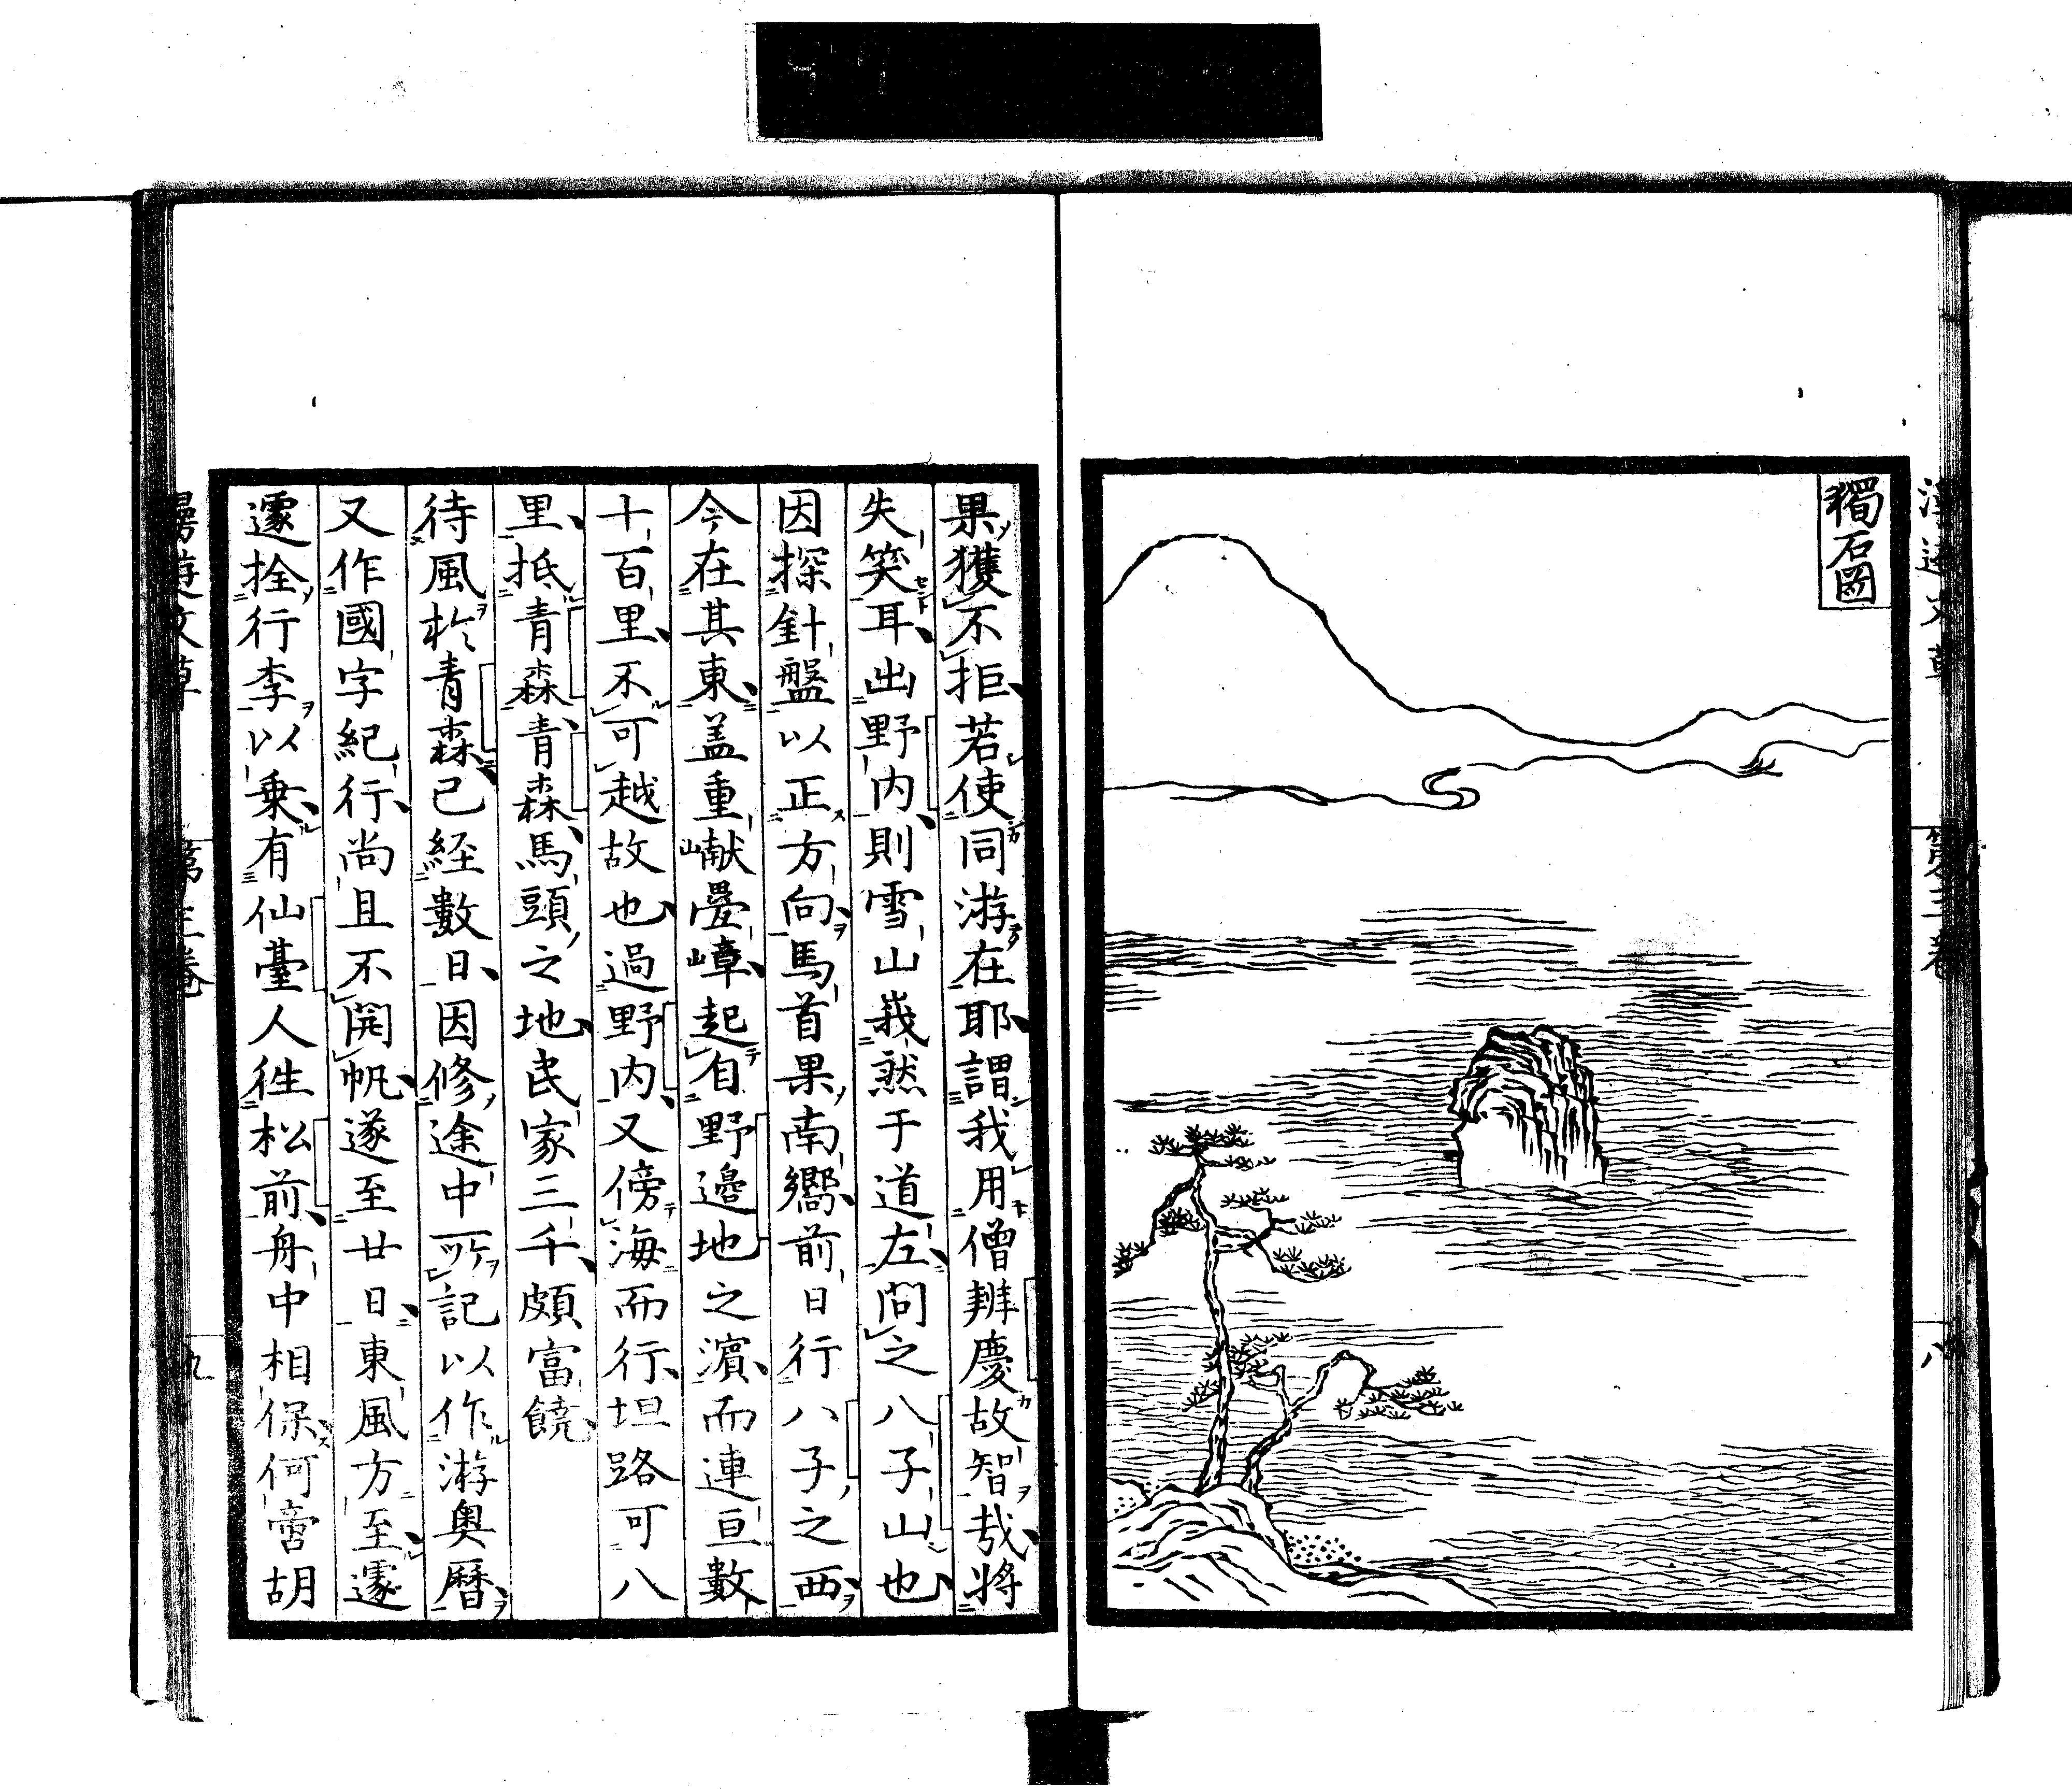 獨石圖
果獲不拒若使同游在耶謂我用僧辨慶故智哉將
失笑耳出野内則雪山峩然于道左問之八子山也
因探針盤以正方向馬首果南嚮前日行八子之西
今在其東盖重巘疊嶂起自野邊地之濵而連亘數
十百里不可越故也過野内又傍海而行坦路可八
里抵青森青森馬頭之地民家三千頗富饒
待風於青森已経數日因修途中所記以作游奥曆
又作國字紀行尚且不開帆遂至廿日東風方至遽
遽拴行李以乗有仙臺人徃松前舟中相保何啻胡
漫遊文草
第三巻
九
漫遊文草
第三巻
八